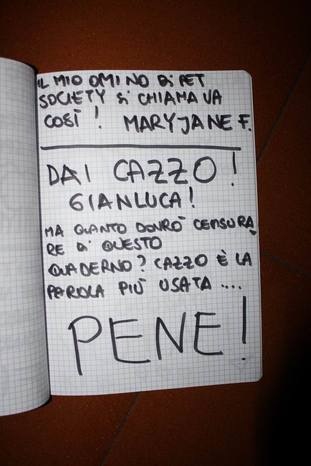 IL MIO OMINO DI PET
SOCIETY SI CHIAMAVA
COSÌ! MARYJANE F.
DAI CAZZO!
GIANLUCA!
MA QUANTO DOVRÒ CENSURA
RE DI QUESTO
QUADERNO? CAZZO È LA
PAROLA PIÙ USATA ....
PENE!